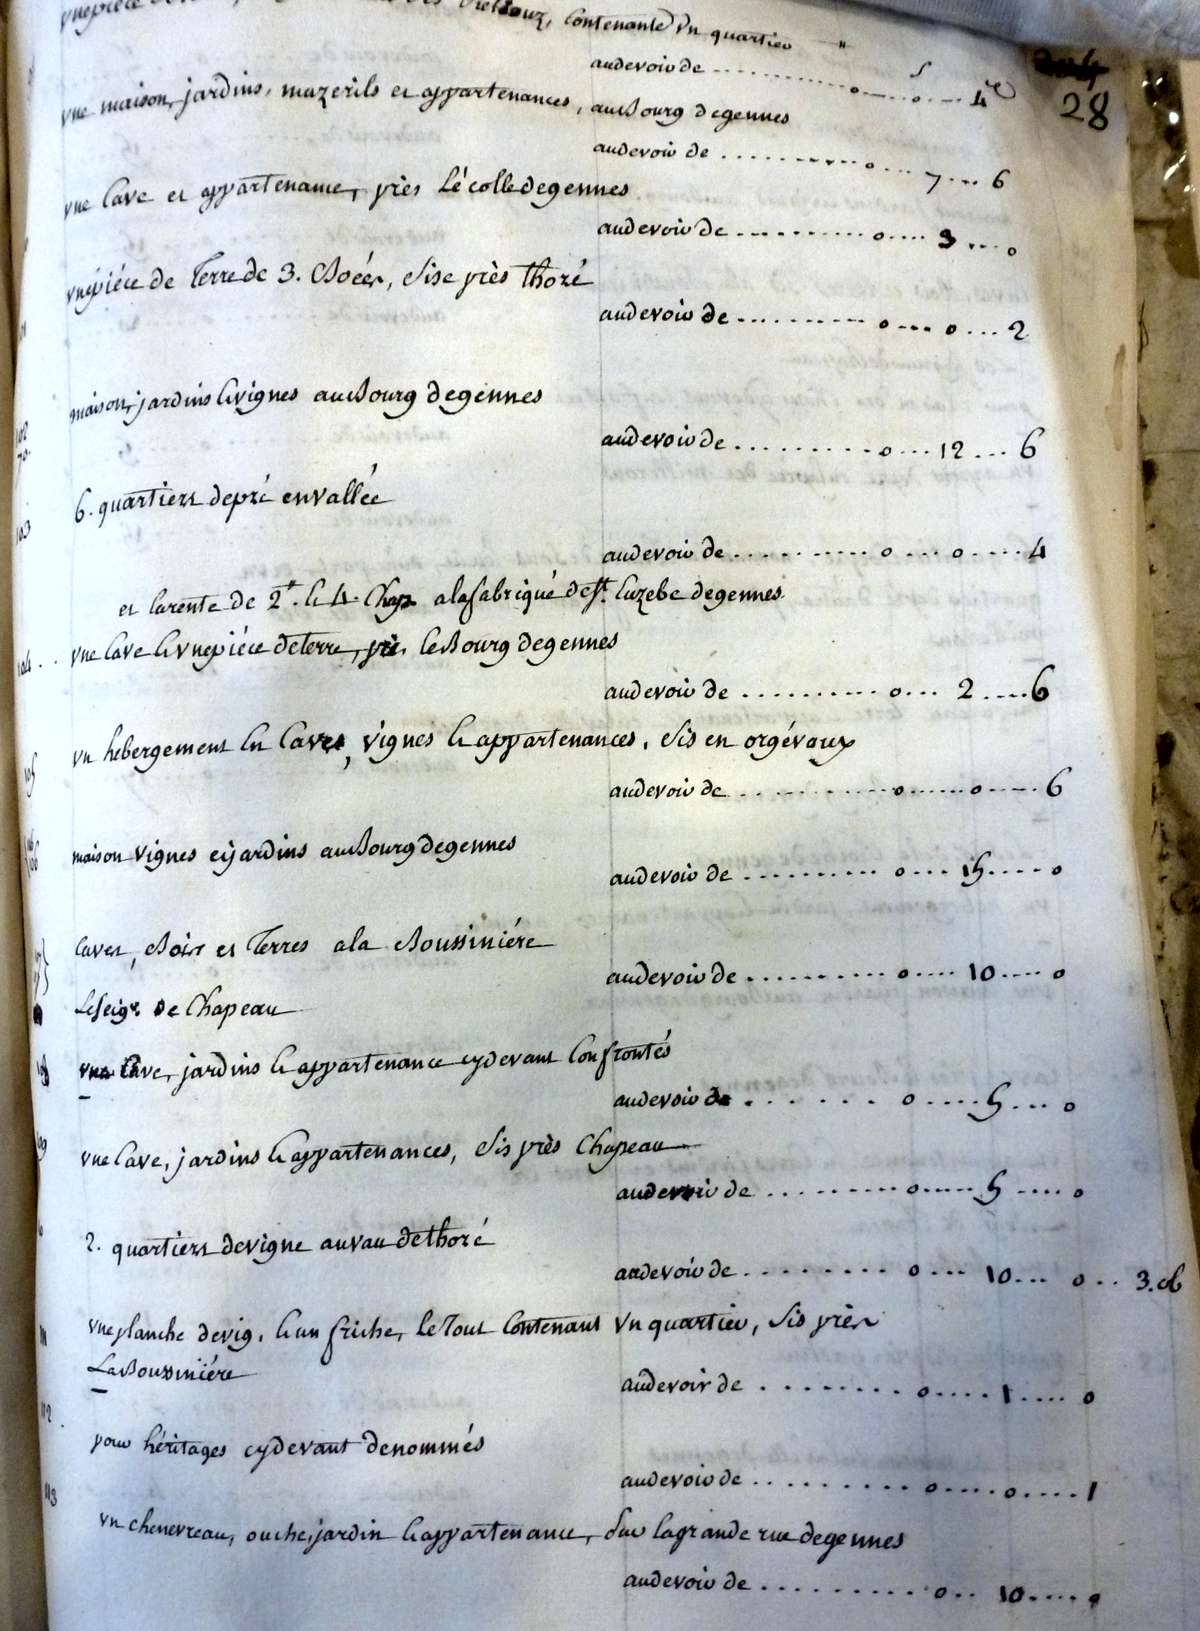 contenante Vn quartier "
audevoir de .............. o.... o.... 4
28
vne maison, jardins, mazerils et appartenances, auBourg degennes
audevoir de .............. o.... 7.... 6
vne Cave et appartenance, près Lécolle degennes
audevoir de .............. o.... 3.... o
vnepiéce de Terre de 3. Boéés, sise près thoré
audevoir de .............. o.... o.... 2
maison, jardins &vignes auBourg degennes
audevoir de .............. o.... 12.... 6
6. quartiers depré envallée
103
audevoir de .............. o.... o.... 4
et larente de 2ᵗ. & 4. Chap. alafabrique deSt. Euzebe degennes
104
vne Cave &vnepiéce deterre, près leBourg degennes
audevoir de .............. o.... 2.... 6
vn hebergement En Caves, vignes &appartenances, sis en orgévaux
105
audevoir de .............. o.... o.... 6
maison vignes etjardins auBourg degennes
106
audevoir de .............. o.... 15.... o
Caves, Bois et Terres ala Boussiniére
audevoir de .............. o.... 10.... o
Leseigr. de Chapeau
vne Cave, jardins &appartenance cydevant Confrontés
audevoir de .............. o.... 5.... o
109
vne Cave, jardins &appartenances, sis près Chapeau
audevoir de .............. o.... 5.... o
2. quartiers devigne auvau dethoré
audevoir de .............. o.... 10.... o.. 3. ob
111
vneplanche devig. &un friche, LeTout Contenant Vn quartier, sis près
LaBoussiniére
audevoir de .............. o.... 1.... o
112
pour héritages cydevant denommés
audevoir de .............. o.... o.... 1
113
vn chenevreau, ouche, jardin &appartenance, sur lagrande rue degennes
audevoir de .............. o.. 10.... o